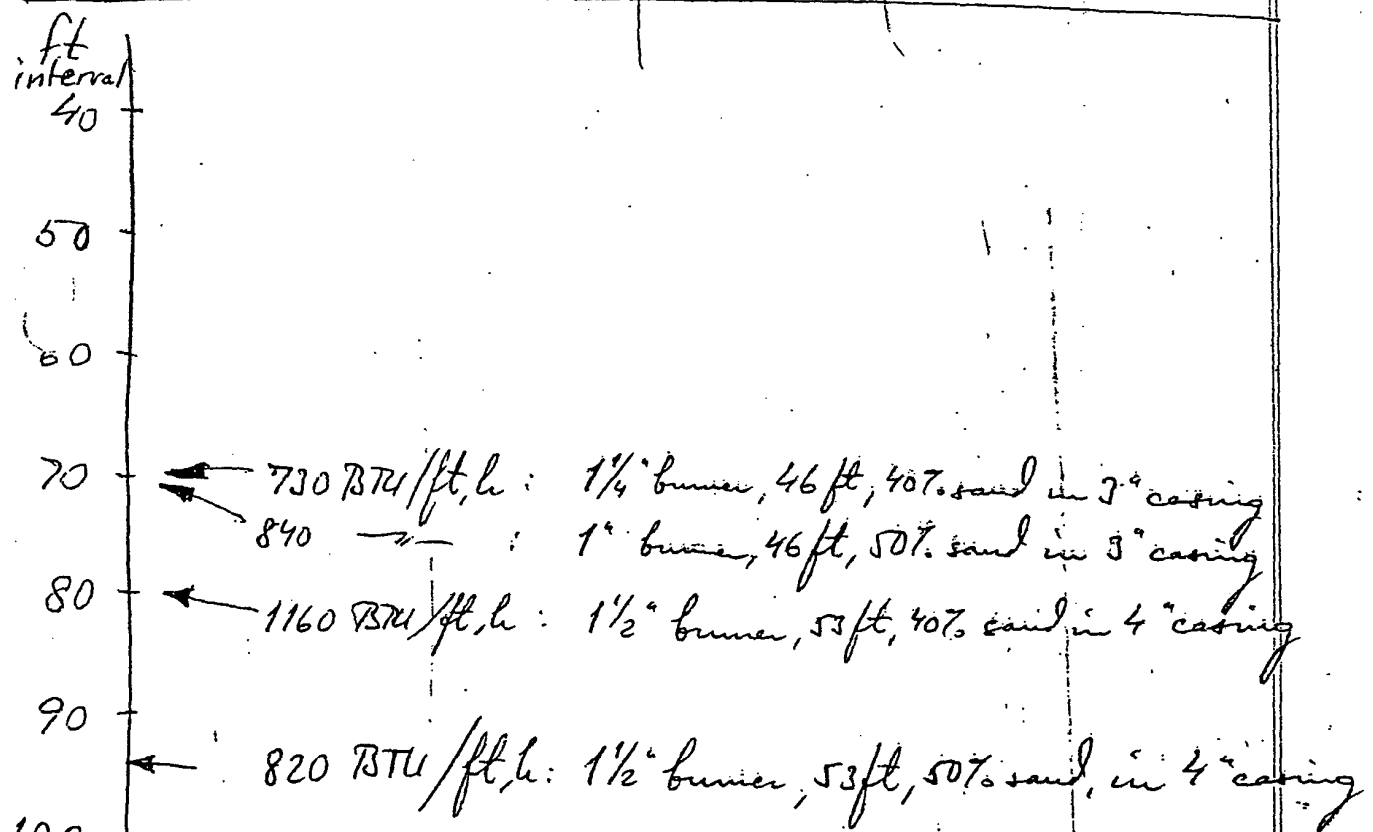 ft
interval
40
50
60
70 730 BTU/ft,h : 1 1/4" burner, 46 ft, 40% sand in 3" casing
840 —〃— : 1" burner, 46 ft, 50% sand in 3" casing
80 1160 BTU/ft,h : 1 1/2" burner, 53 ft, 40% sand in 4" casing
90
820 BTU/ft,h : 1 1/2" burner, 53 ft, 50% sand, in 4" casing